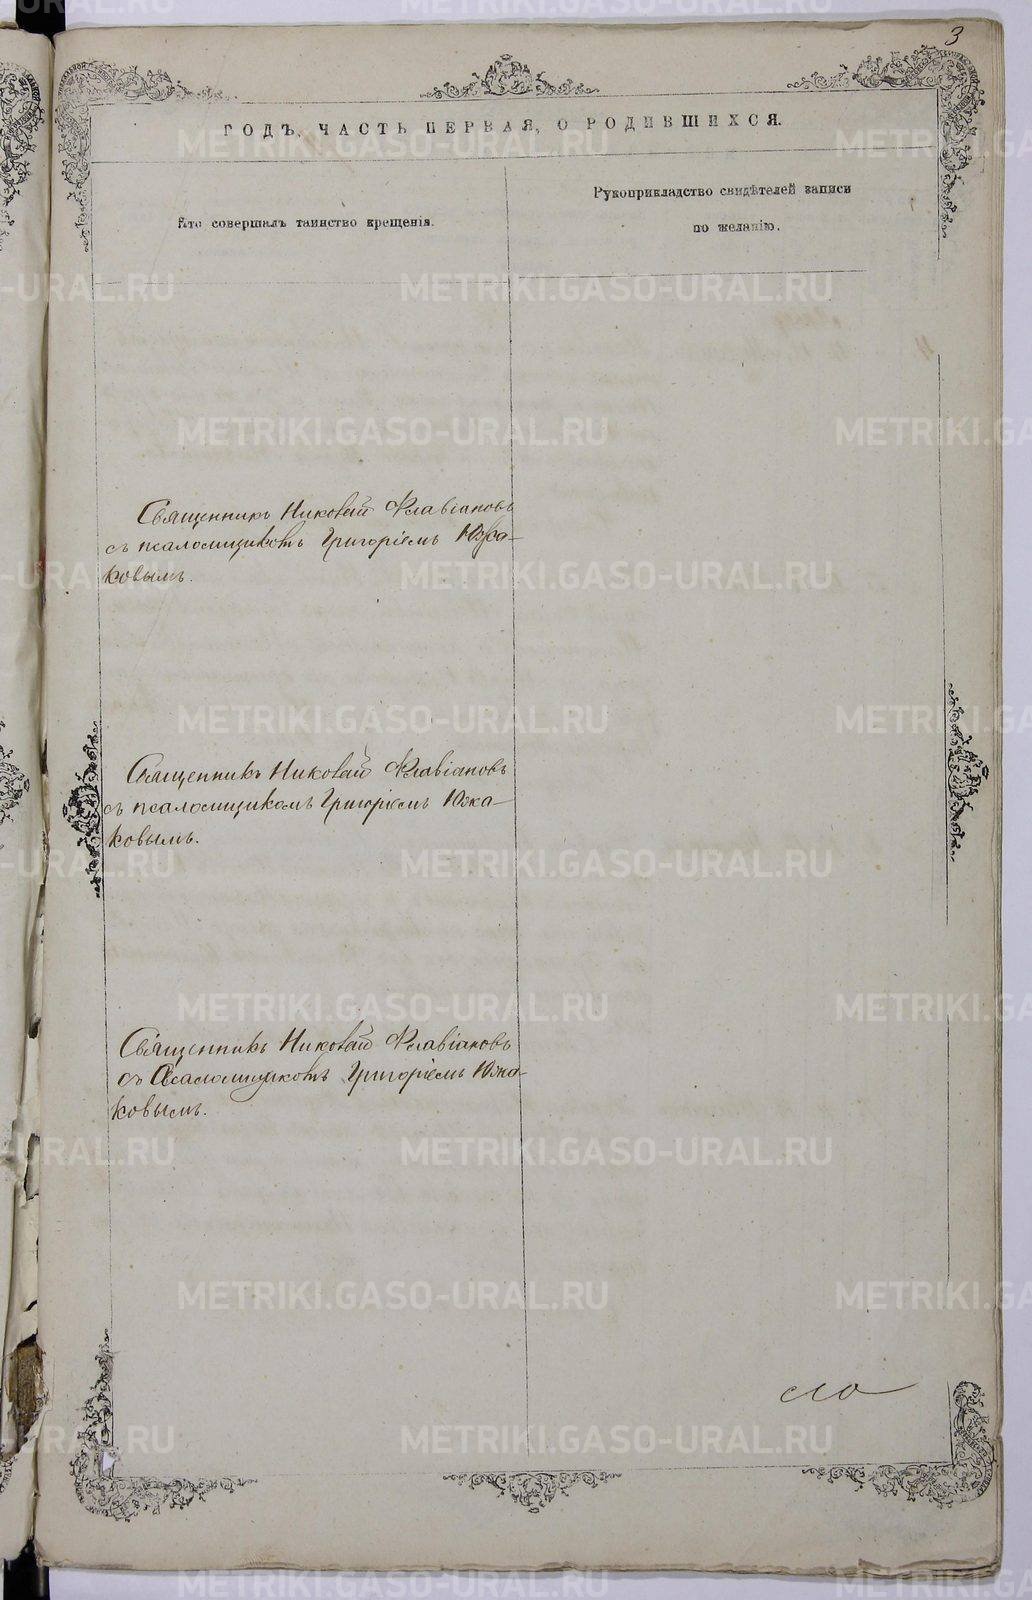 3
ГОДЪ, ЧАСТЬ ПЕРВАЯ, О РОДИВШИХСЯ.
Кто совершалъ таинство крещенія.
Рукоприкладство свидѣтелей записи
по желанію.
Священникъ Николай Флавіановъ
съ псаломщикомъ Григоріемъ Южа-
ковымъ.
Священникъ Николай Флавіановъ
съ псаломщикомъ Григоріемъ Южа-
ковымъ.
Священникъ Николай Флавіановъ
съ Псаломщикомъ Григоріемъ Южа-
ковымъ.
METRIKI.GASO-URAL.RU